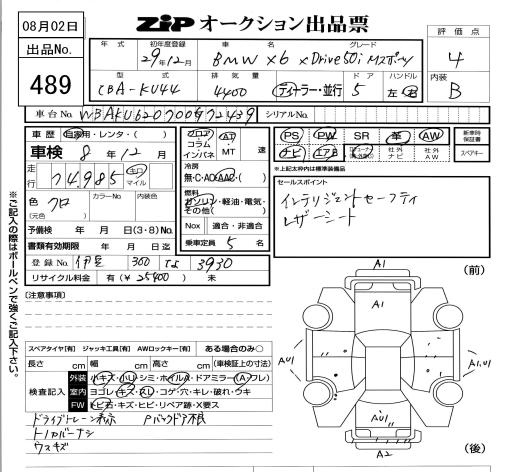 08月02日
ZIP オークション出品票
出品No.
489
年式 初年度登録 車名 グレード
29年12月 BMW X6 xDrive50i Mスポーツ
型式 排気量 ドア ハンドル
CBA-KU44 4400 ディーラー・並行 5 左・右
評価点
4
内装
B
車台No. WBAKU620700U72439 シリアルNo.
車歴 自家用・レンタ・( )
車検 8年12月
走行 74,985 キロ マイル
色 クロ (元色) カラーNo. 内装色
予備検 年 月 日 (3・8) No.
書類有効期限 年 月 日迄
登録No. 伊豆 300 3930
リサイクル料金 有(¥25400) 未
フロア コラム インパネ AT MT 速
冷房 無・C・AC・AAC・( )
燃料 ガソリン・軽油・電気・その他( )
Nox 適合・非適合
乗車定員 5 名
PS PW SR 革 AW
ナビ エアB 社外ナビ 社外AW
新車時保証書
スペアキー
*上記太枠内は標準装備品
セールスポイント
インテリジェントセーフティ
レザーシート
※ご記入の際はボールペンで強くご記入下さい。
[注意事項]
スペアタイヤ[有] ジャッキ工具[有] AWロックキー[有] ある場合のみ○
長さ cm 幅 cm 高さ cm (車検証上の寸法)
検査記入
外装 小キズ・小凹・シミ・ホイルキズ・ドアミラー(A・フレ)
室内 ヨゴレ・キズ・スレ・コゲ・穴・キレ・破れ・ウキ
FW トビ石・キズ・ヒビ・リペア跡・X要ス
ドライブトレーン表示 Pバックドア不良
トノカバーナシ
ウスキズ
A1
(前)
A1
AU1
A1,U1
AU1
A2
(後)